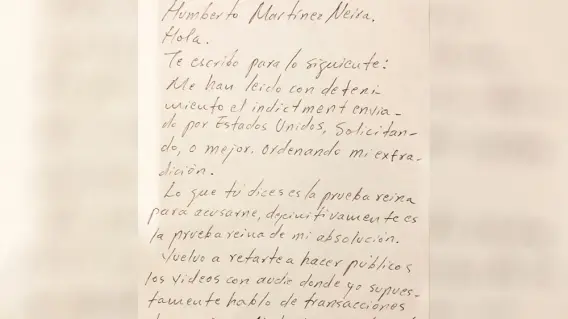 Humberto Martínez Neira.
Hola.
Te escribo para lo siguiente:
Me han leído con deteni-
miento el indictment envia-
do por Estados Unidos, Solicitan-
do, o mejor. Ordenando mi extra-
dición.
Lo que tú dices es la prueba reina
para acusarme, definitivamente es
la prueba reina de mi absolución.
Vuelvo a retarte a hacer públicos
los videos con audio donde yo supues-
tamente hablo de transacciones